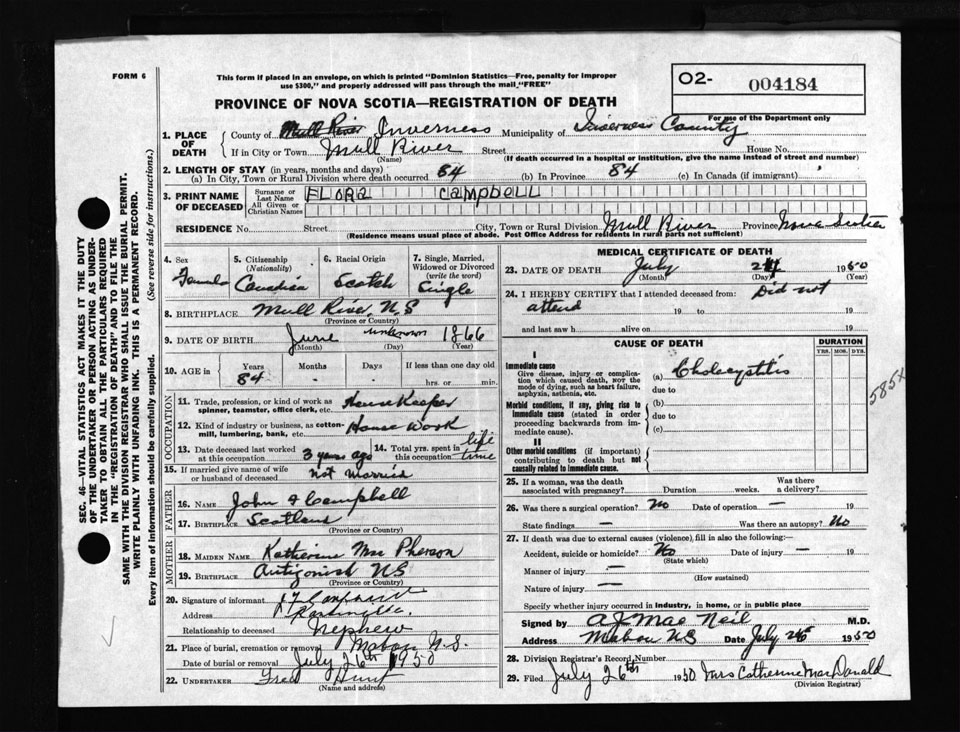 FORM 6
This form if placed in an envelope, on which is printed "Dominion Statistics—Free, penalty for improper
use $300," and properly addressed will pass through the mail "FREE"
O2- 004184
For use of the Department only
PROVINCE OF NOVA SCOTIA—REGISTRATION OF DEATH
1. PLACE OF DEATH County of Mull River Inverness Municipality of Inverness County
If in City or Town Mull River Street House No.
(Name) (If death occurred in a hospital or institution, give the name instead of street and number)
2. LENGTH OF STAY (in years, months and days)
(a) In City, Town or Rural Division where death occurred 84 (b) In Province 84 (c) In Canada (if immigrant)
3. PRINT NAME OF DECEASED Surname or Last Name FLORA Campbell
All Given or Christian Names
RESIDENCE No. Street City, Town or Rural Division Mull River Province Nova Scotia
(Residence means usual place of abode. Post Office Address for residents in rural parts not sufficient)
4. Sex 5. Citizenship (Nationality) 6. Racial Origin 7. Single, Married, Widowed or Divorced (write the word)
Female Canadian Scotch Single
8. BIRTHPLACE Mull River, N S
(Province or Country)
9. DATE OF BIRTH June unknown 1866
(Month) (Day) (Year)
10. AGE in Years Months Days If less than one day old
84 - - hrs. or min.
OCCUPATION
11. Trade, profession, or kind of work as spinner, teamster, office clerk, etc. House Keeper
12. Kind of industry or business, as cotton-mill, lumbering, bank, etc. House Work
13. Date deceased last worked at this occupation 3 years ago 14. Total yrs. spent in this occupation life time
15. If married give name of wife or husband of deceased Not Married
FATHER
16. NAME John Campbell
17. BIRTHPLACE Scotland
(Province or Country)
MOTHER
18. MAIDEN NAME Katherine Mac Pherson
19. BIRTHPLACE Antigonish NS
(Province or Country)
20. Signature of informant
Address
Relationship to deceased Nephew
21. Place of burial, cremation or removal Mabou N.S.
Date of burial or removal July 26th 1950
22. UNDERTAKER Hunt
(Name and address)
MEDICAL CERTIFICATE OF DEATH
23. DATE OF DEATH July 24 1950
(Month) (Day) (Year)
24. I HEREBY CERTIFY that I attended deceased from: Did not
attend 19 to 19
and last saw h alive on 19
CAUSE OF DEATH
DURATION
YRS. MOS. DYS.
I
Immediate cause
Give disease, injury or complication which caused death, NOT the mode of dying, such as heart failure, asphyxia, asthenia, etc.
(a) Cholecystitis
due to
585x
Morbid conditions, if any, giving rise to immediate cause (stated in order proceeding backwards from immediate cause).
(b)
due to
(c)
II
Other morbid conditions (if important) contributing to death but not causally related to immediate cause.
25. If a woman, was the death associated with pregnancy? Duration weeks. Was there a delivery?
26. Was there a surgical operation? No Date of operation — 19
State findings — Was there an autopsy? No
27. If death was due to external causes (violence), fill in also the following:—
Accident, suicide or homicide? No Date of injury — 19
(State which)
Manner of injury —
(How sustained)
Nature of injury —
Specify whether injury occurred in industry, in home, or in public place
Signed by A J Mac Neil M.D.
Address Mabou NS Date July 1950
28. Division Registrar's Record Number
29. Filed July 26th 1950 Mrs Catherine MacDonald
(Division Registrar)
SEC. 46—VITAL STATISTICS ACT MAKES IT THE DUTY
OF THE UNDERTAKER OR PERSON ACTING AS UNDER-
TAKER TO OBTAIN ALL THE PARTICULARS REQUIRED
IN THE "REGISTRATION OF DEATH" AND TO FILE THE
SAME WITH THE DIVISION REGISTRAR WHO SHALL ISSUE THE BURIAL PERMIT.
WRITE PLAINLY WITH UNFADING INK. THIS IS A PERMANENT RECORD.
Every item of information should be carefully supplied. (See reverse side for instructions.)